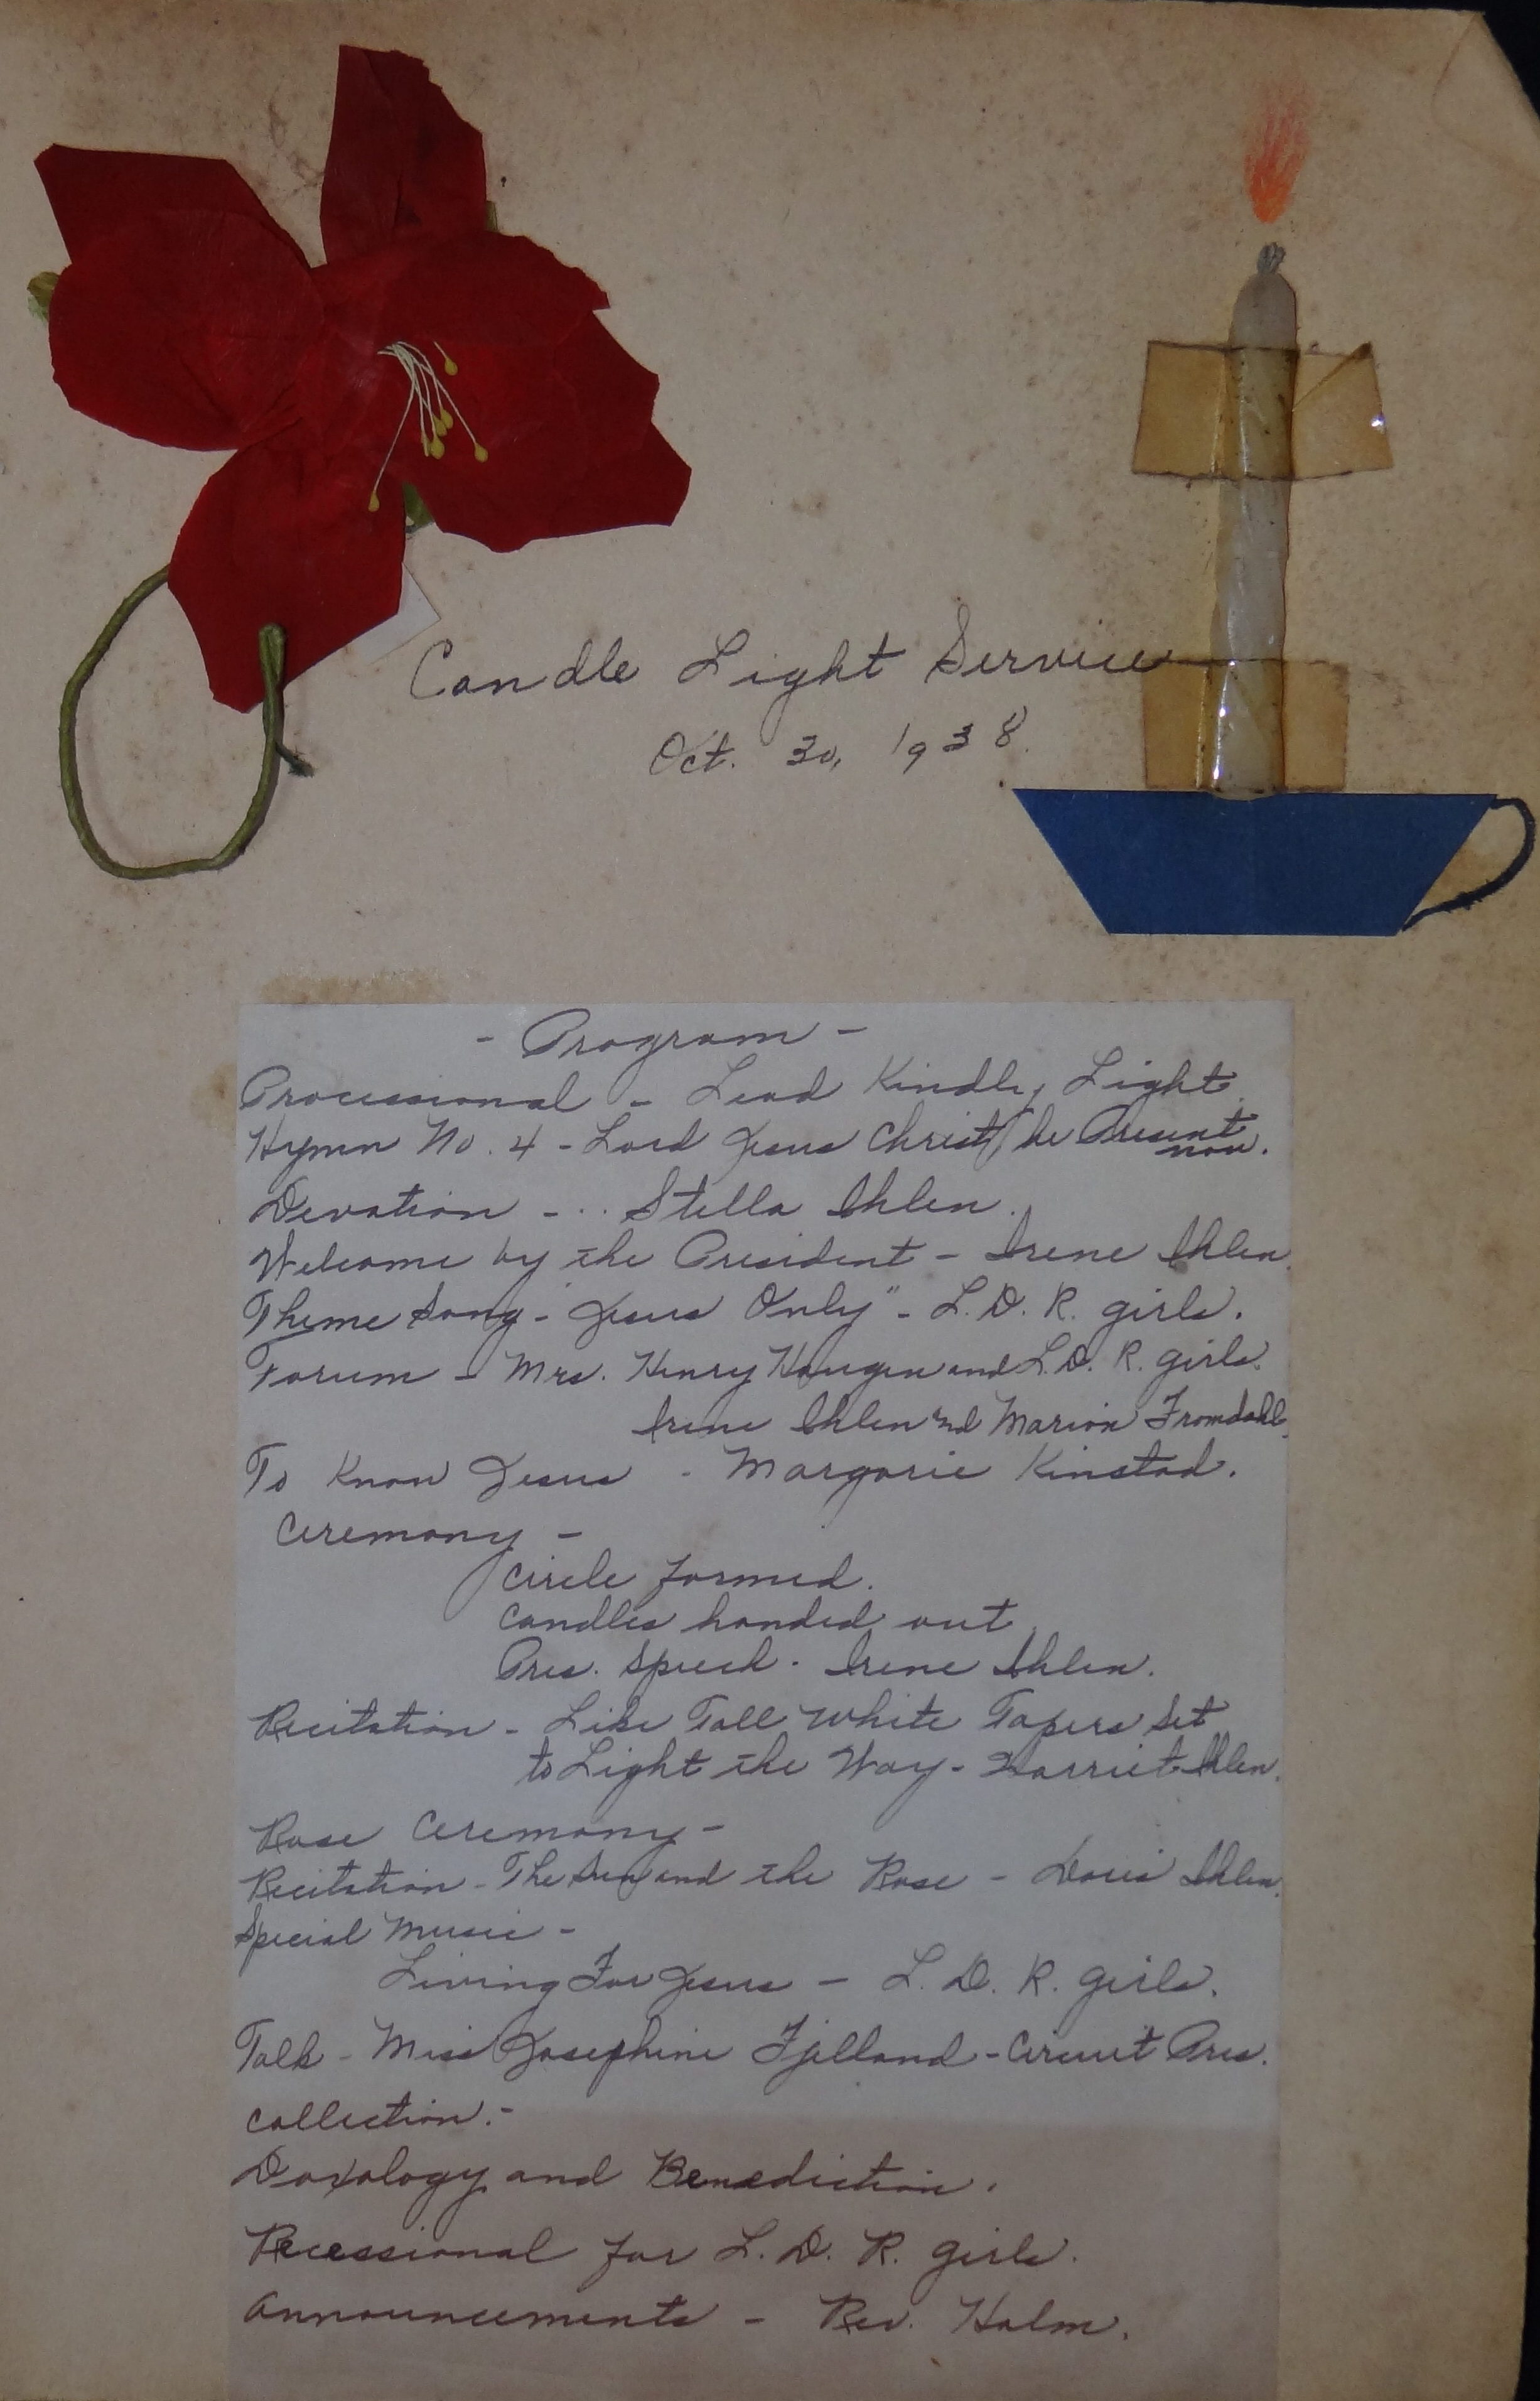 Candle Light Service
Oct. 30, 1938.
- Program -
Processional - Lead Kindly Light
Hymn No. 4 - Lord Jesus Christ, be Present
now.
Devotion - . . Stella Ihlen.
Welcome by the President - Irene Ihlen.
Theme Song - "Jesus Only" - L. D. R. girls.
Forum - Mrs. Henry Haugen and L. D. R. girls.
Irene Ihlen and Marion Fromdahl.
To Know Jesus - Margorie Kinstad.
Ceremony -
Circle formed.
Candles handed out
Pres. Speech. Irene Ihlen.
Recitation - Like Tall White Tapers Set
to Light the Way - Harriet Ihlen.
Rose Ceremony -
Recitation - The Sun and the Rose - Doris Ihlen.
Special Music -
Living For Jesus - L. D. R. girls.
Talk - Miss Josephine Fjelland - Circuit Pres.
Collection. -
Doxology and Benediction.
Recessional for L. D. R. girls.
Announcements - Rev. Halm.